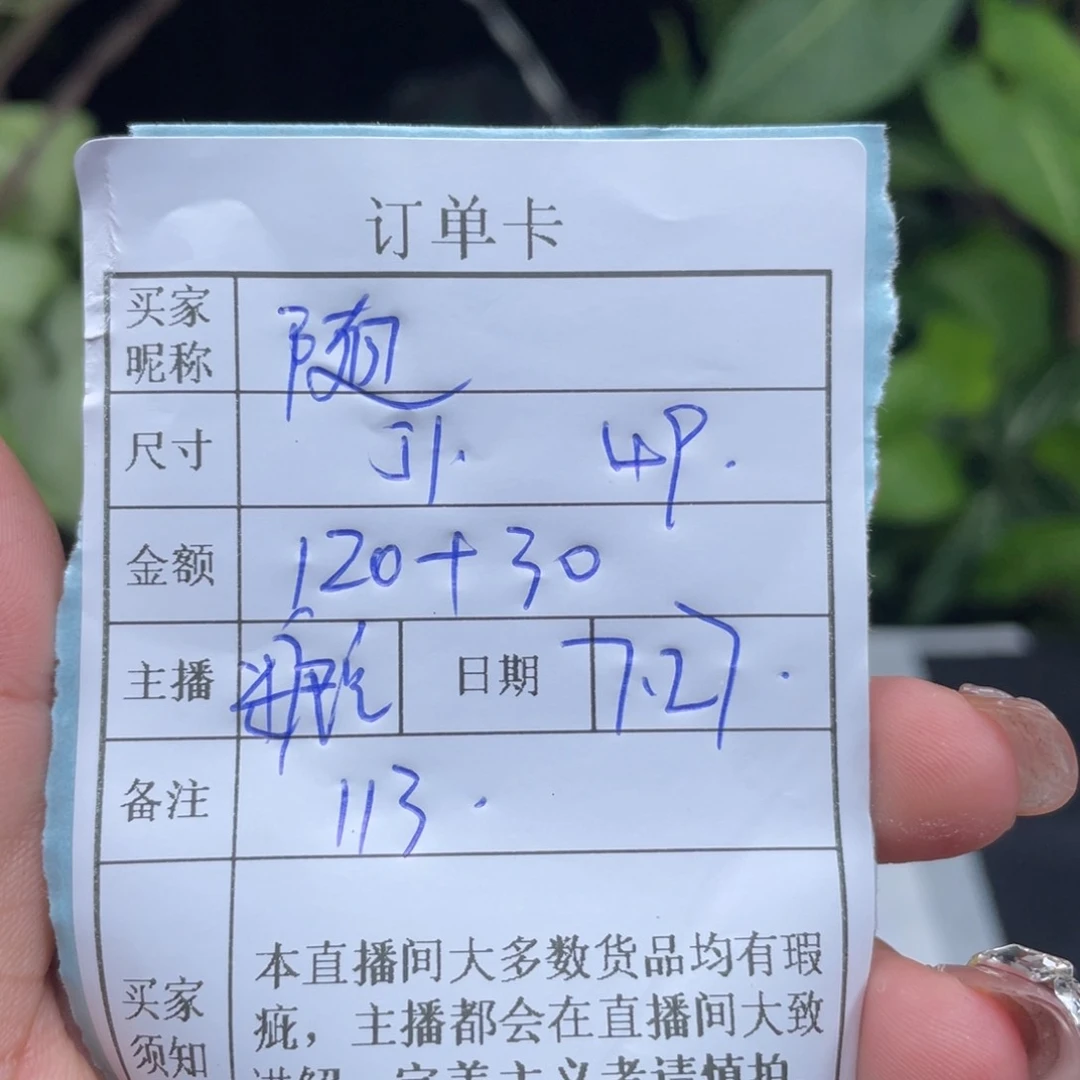 订单卡
买家昵称 随
尺寸 51. 49.
金额 120+30
主播 日期 7.27.
备注 113.
买家须知
本直播间大多数货品均有瑕
疵，主播都会在直播间大致
讲解，完美主义者请慎拍